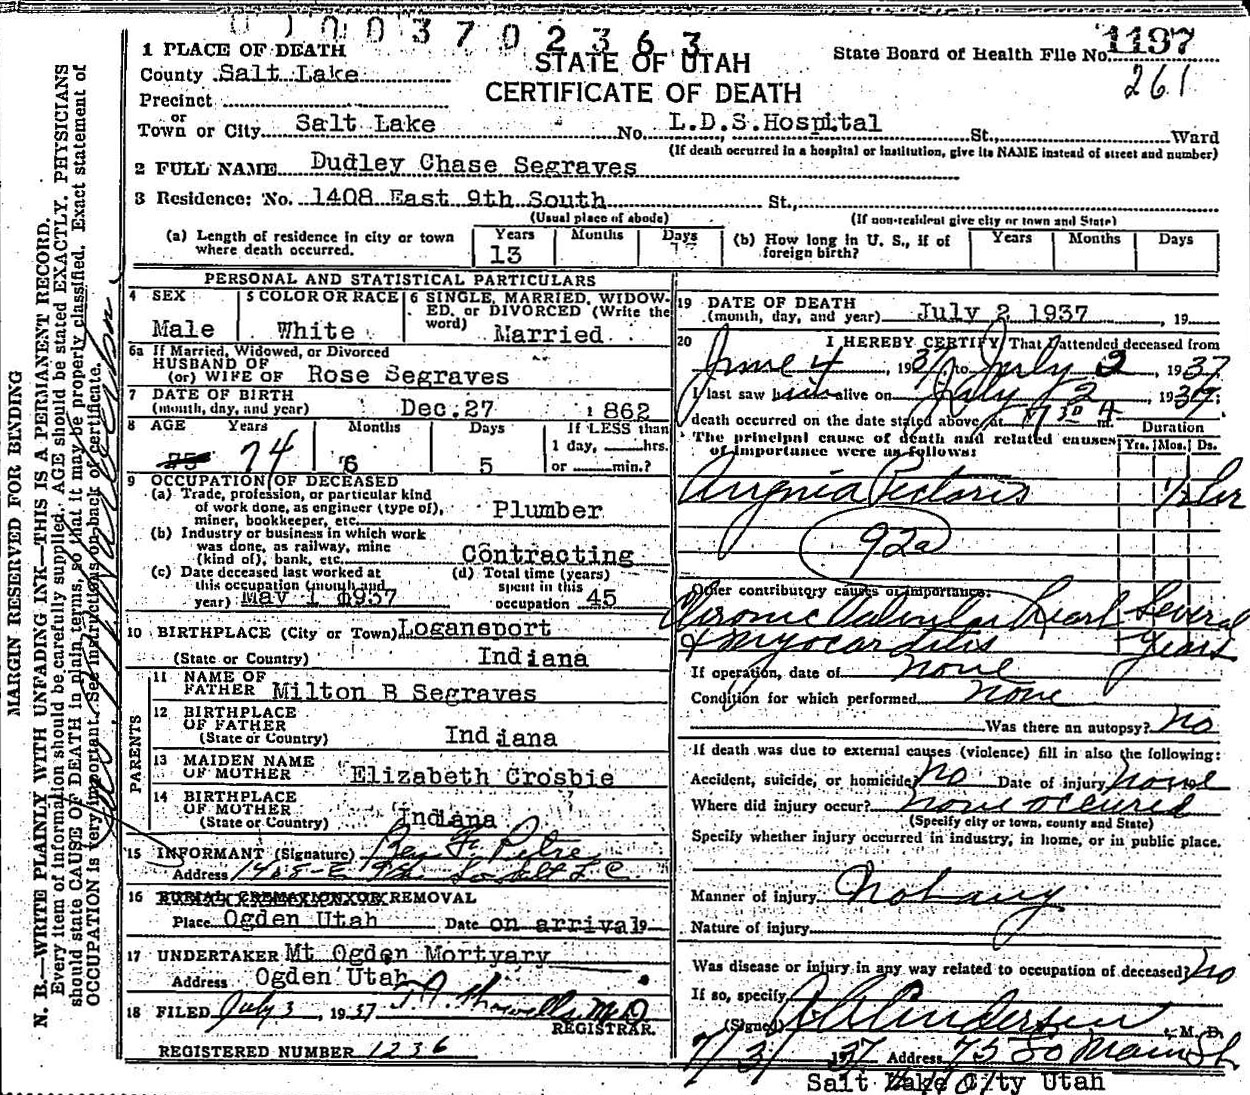 01003702363
1 PLACE OF DEATH
County Salt Lake
Precinct
or
Town or City Salt Lake No. L.D.S.Hospital St., Ward
(If death occurred in a hospital or institution, give its NAME instead of street and number)
STATE OF UTAH
CERTIFICATE OF DEATH
State Board of Health File No. 1197
261
2 FULL NAME Dudley Chase Segraves
3 Residence: No. 1408 East 9th South St.,
(Usual place of abode) (If non-resident give city or town and State)
(a) Length of residence in city or town where death occurred. Years 13 Months Days
(b) How long in U. S., if of foreign birth? Years Months Days
PERSONAL AND STATISTICAL PARTICULARS
4 SEX Male
5 COLOR OR RACE White
6 SINGLE, MARRIED, WIDOWED, or DIVORCED (Write the word) Married
6a If Married, Widowed, or Divorced
HUSBAND OF
(or) WIFE OF Rose Segraves
7 DATE OF BIRTH
(month, day, and year) Dec.27 1862
8 AGE Years Months Days If LESS than
1 day, hrs.
75 74 6 5 or min.?
9 OCCUPATION OF DECEASED
(a) Trade, profession, or particular kind
of work done, as engineer (type of),
miner, bookkeeper, etc. Plumber
(b) Industry or business in which work
was done, as railway, mine
(kind of), bank, etc. Contracting
(c) Date deceased last worked at
this occupation (month and
year) May 1 1937
(d) Total time (years)
spent in this
occupation 45
10 BIRTHPLACE (City or Town) Logansport
(State or Country) Indiana
PARENTS
11 NAME OF
FATHER Milton B Segraves
12 BIRTHPLACE
OF FATHER
(State or Country) Indiana
13 MAIDEN NAME
OF MOTHER Elizabeth Crosbie
14 BIRTHPLACE
OF MOTHER
(State or Country) Indiana
15 INFORMANT (Signature)
Address 1408-E 9th So
16 BURIAL CREMATION OR REMOVAL
Place Ogden Utah Date on arrival 19
17 UNDERTAKER Mt Ogden Mortyary
Address Ogden Utah
18 FILED July 3, 1937 M.D.
REGISTRAR.
REGISTERED NUMBER 1236
19 DATE OF DEATH
(month, day, and year) July 2 1937, 19
20 I HEREBY CERTIFY, That I attended deceased from
June 4, 1937, to July 2, 1937
I last saw him alive on July 2, 1937;
death occurred on the date stated above, at 7 30 A m.
The principal cause of death and related causes
of importance were as follows:
Duration
Yrs. Mos. Ds.
Angina Pectoris 1/2 hr
92a
Other contributory causes of importance:
Chronic Valvular heart Several
& myocarditis years
If operation, date of none
Condition for which performed none
Was there an autopsy? No
If death was due to external causes (violence) fill in also the following:
Accident, suicide, or homicide? No Date of injury none 19
Where did injury occur? none occured
(Specify city or town, county and State)
Specify whether injury occurred in industry, in home, or in public place.
Manner of injury Not any
Nature of injury
Was disease or injury in any way related to occupation of deceased? No
If so, specify
(Signed) Andersen M. D.
7/3/1937 Address 75 So Main St
Salt Lake City Utah
MARGIN RESERVED FOR BINDING
N. B.—WRITE PLAINLY WITH UNFADING INK—THIS IS A PERMANENT RECORD.
Every item of information should be carefully supplied. AGE should be stated EXACTLY. PHYSICIANS
should state CAUSE OF DEATH in plain terms, so that it may be properly classified. Exact statement of
OCCUPATION is very important. See instructions on back of certificate.